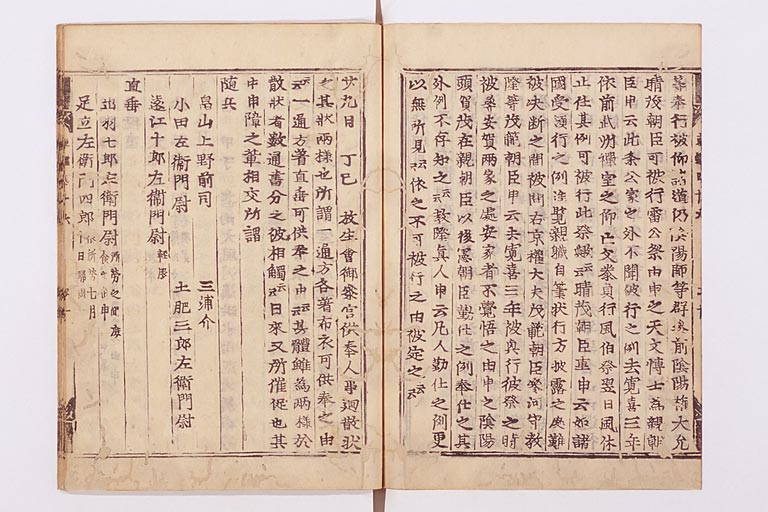 等奉行被仰諸道仍陰陽師等群集前陰陽権大允
晴茂朝臣可被行雷公祭由申之天文博士為親朝
臣申云此祭公家之外不聞被行之例去寛喜三年
依前武州禅室之仰亡父泰貞行風伯祭翌日風休
止仕其例可被行此祭歟云晴茂朝臣重申云如諸
国受領行之例進覧親職自筆状行方披露之處難
被决断之間被問右京権大夫茂範朝臣参河守教
隆等茂範朝臣申云去寛喜三年被興行彼祭之時
被尋安賀両家之處安家者不覚悟之由申之陰陽
頭賀茂在親朝臣以後憲朝臣勤仕之例奉仕之其
外例不存知之云教隆真人申云凡人勤仕之例更
以無所見云依之不可被行之由被定之云
廿九日　丁巳　放生會御参宮供奉人事廻散状
之其状両様也所謂一通方各著布衣可供奉之由
云一通方著直垂可供奉之由云甚體雖為両様於
散状者数通書分之彼相觸云日來又所催促也其
中申障之輩相交所謂
随兵
畠山上野前司　三浦介
小田左衛門尉　土肥三郎左衛門尉
遠江十郎左衛門尉 軽服
直垂
出羽七郎左衛門尉 所労之間
足立左衛門四郎 依所労七月